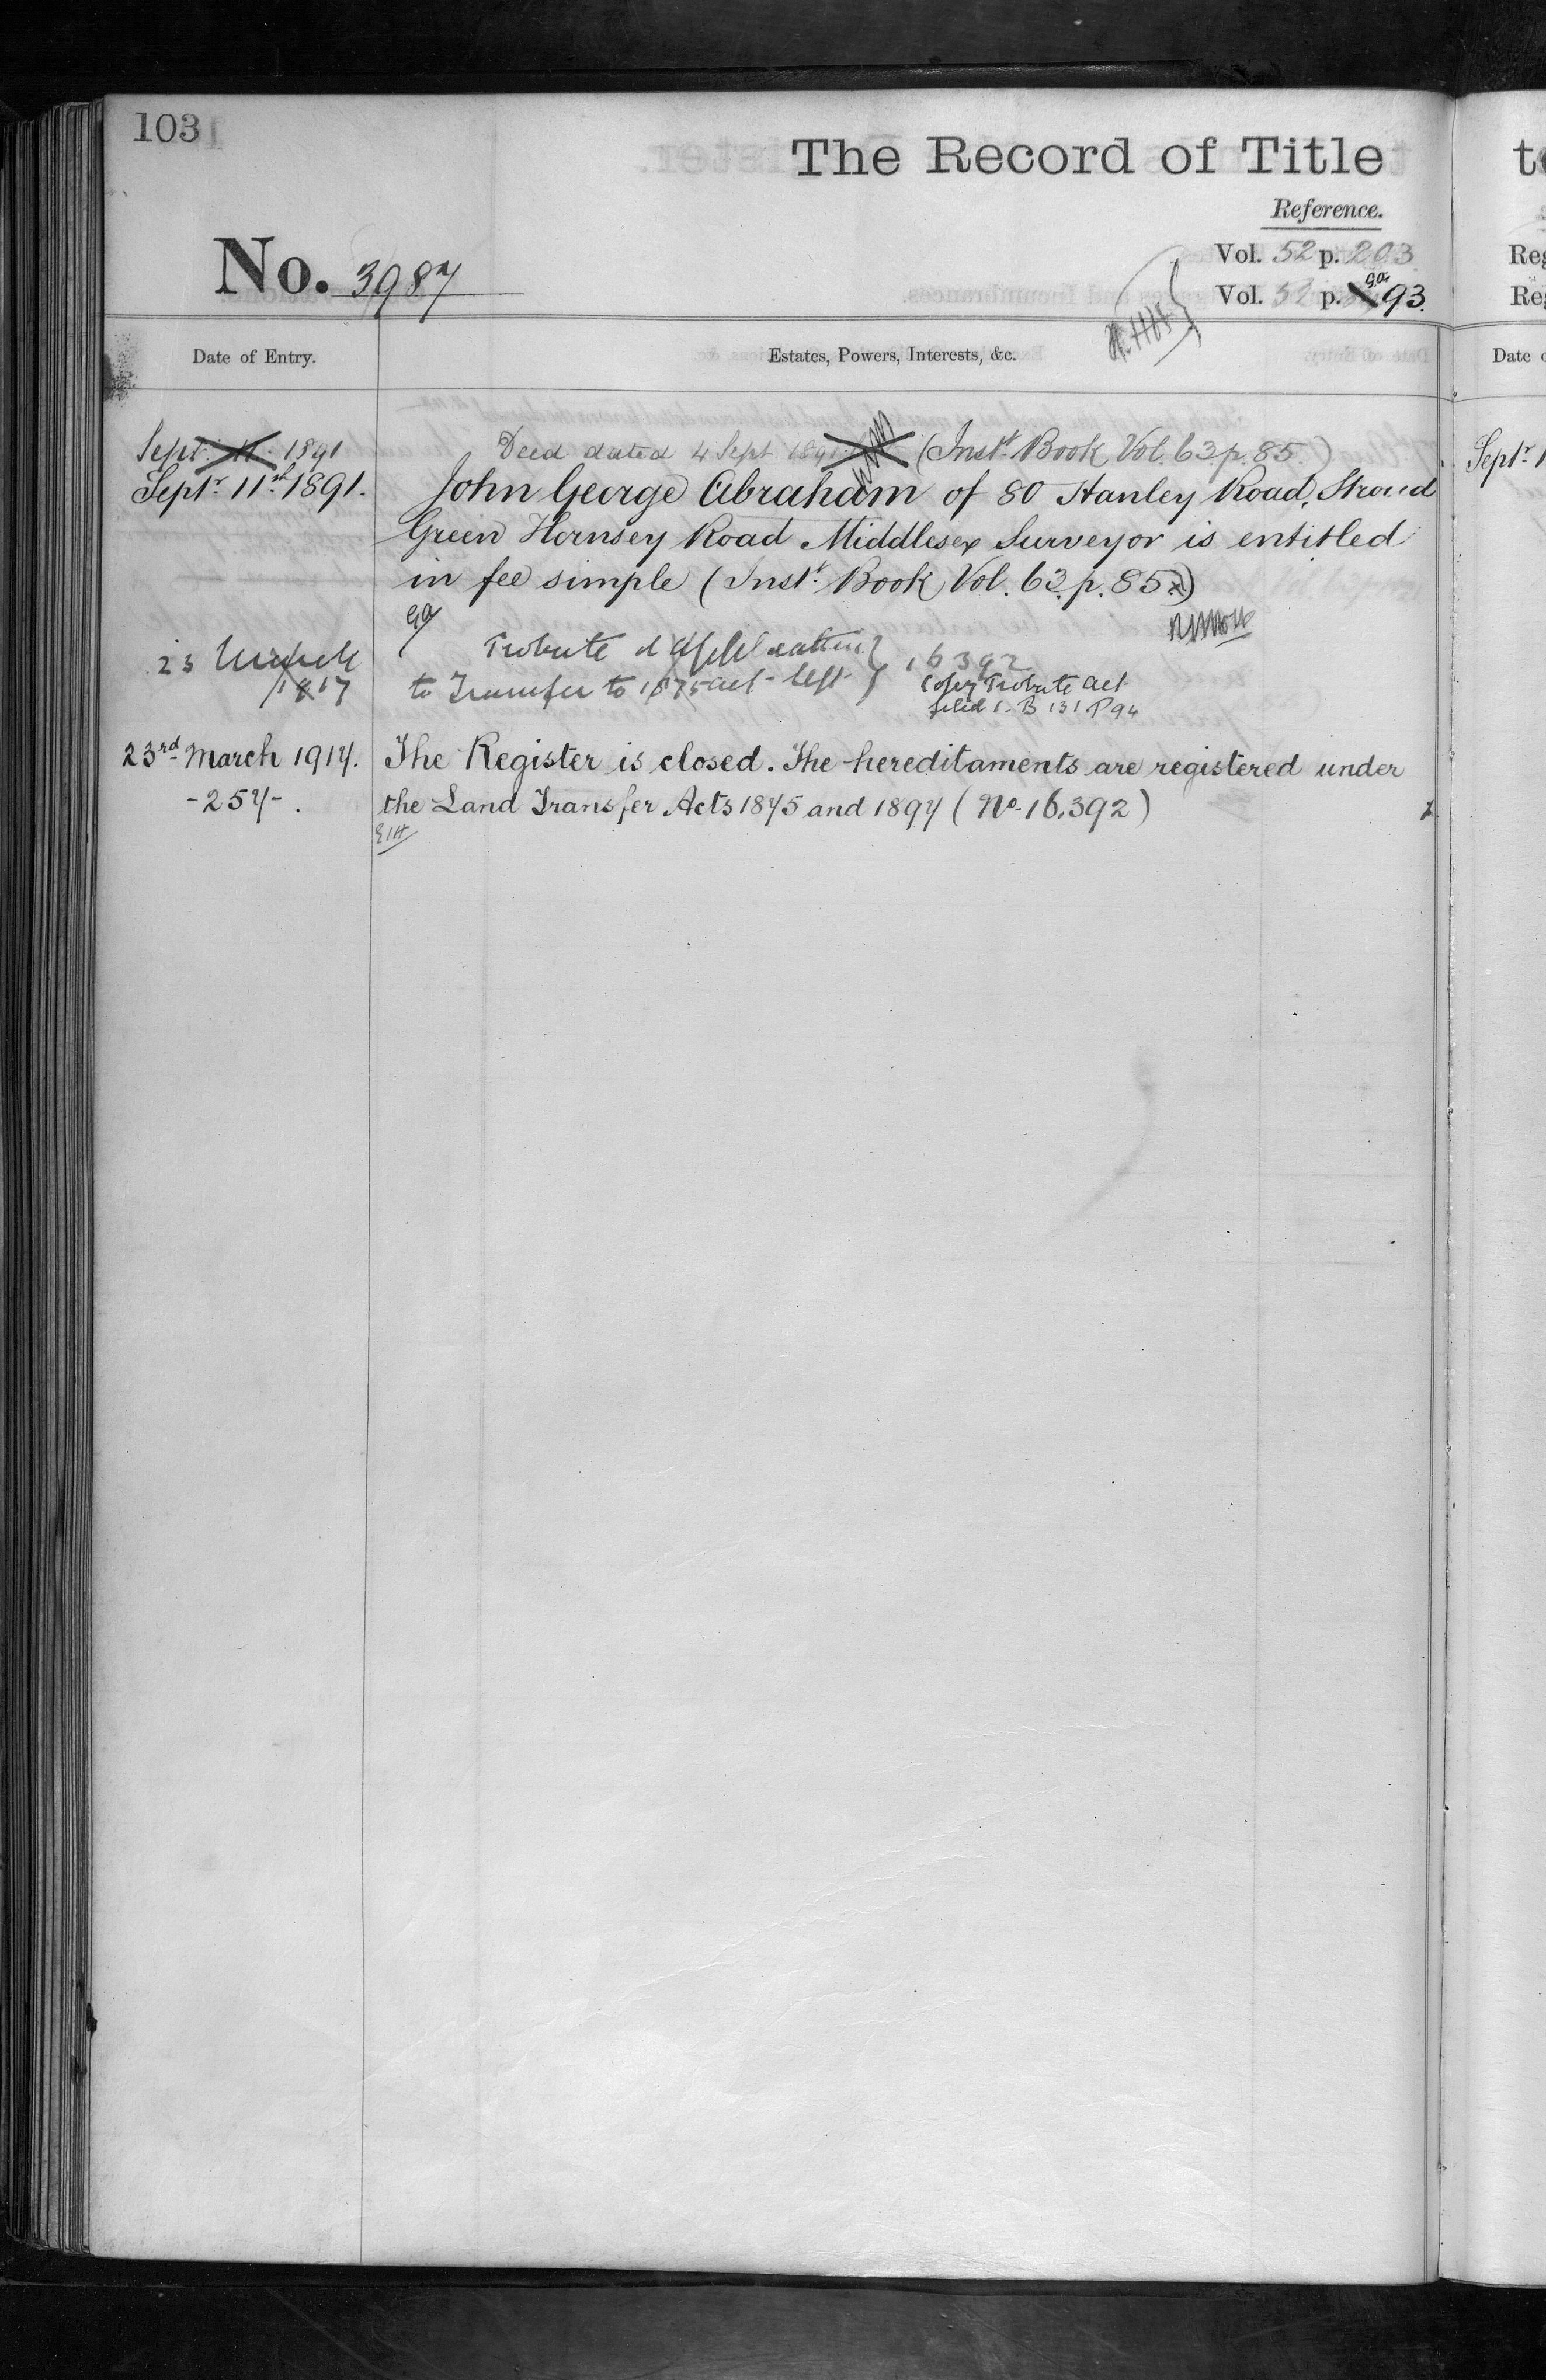 103
The Record of Title
Reference.
No. 3987
Vol. 52 p. 203
Vol. 52 p. 93.
Date of Entry.
Estates, Powers, Interests, &c.
Sept. 11. 1891
Deed dated 4 Sept 1891 (Inst. Book Vol. 63. p. 85.)
Septr. 11th 1891.
John George Abraham of 80 Hanley Road, Stroud
Green Hornsey Road Middlesex Surveyor is entitled
in fee simple (Inst. Book Vol. 63. p. 85.)
23 March
Probate & application
1917
to Transfer to 1875 act left
16392
Copy Probate act
filed I. B 131 P 94
23rd March 1917.
The Register is closed. The hereditaments are registered under
-257-.
the Land Transfer Acts 1875 and 1897 (No. 16,392)
to
Reg
Reg
Date
Septr. 1